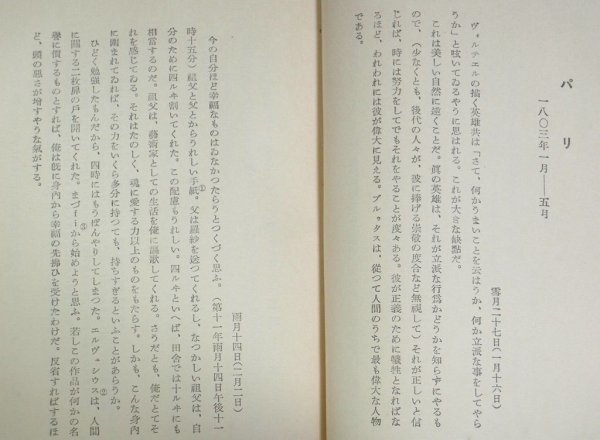 パリ
一八〇三年一月――五月
雪月二十七日(一月十六日)
ヴォルテエルの描く英雄共は「さて、何かうまいことを云はうか、何か立派な事をしてやら
うか」と呟いてゐるやうに思はれる。これが大きな缺點だ。
これは美しい自然に遠くことだ。眞の英雄は、それが立派な行爲かどうかを知らずにやるも
ので、(少なくとも、後代の人々が、彼に捧げる崇敬の度合など無視して)それが正しいと信
じれば、時には努力をしてでもそれをやることが度々ある。彼が正義のために犠牲となればな
るほど、われわれには彼が偉大に見える。ブルゥタスは、從つて人間のうちで最も偉大な人物
である。
雨月十四日(二月二日)
今の自分ほど幸福なものはゐなかつたらうとつくづく思ふ。(第十一年雨月十四日午後十一
時十五分)祖父と父とからうれしい手紙①。父は羅紗を送つてくれるし、なつかしい祖父は、自
分のために四ルヰ割いてくれた。この配慮もうれしい。四ルヰといへば、田舍では十ルヰにも
相當するのだ。祖父は、藝術家としての生活を俺に謳歌してくれる。さうだとも、俺だとてそ
れを感じてゐる。それはたのしく、魂に愛する力以上のものをもたらす。しかも、こんな身内
に圍まれてゐれば、その力をいくら多分に持つても、持ちすぎるといふことがあらうか。
ひどく勉強したもんだから、四時にはもうぼんやりしてしまつた。エルヴェシウス②は、人間
に關する二枚扉の戸を開いてくれた。まづf i③から始めようと思ふ。若しこの作品が何かの名
譽に價するものとすれば、俺は旣に身内から幸福の先拂ひを受けたわけだ。反省すればするほ
ど、頭の惡さが增すやうな氣がする。